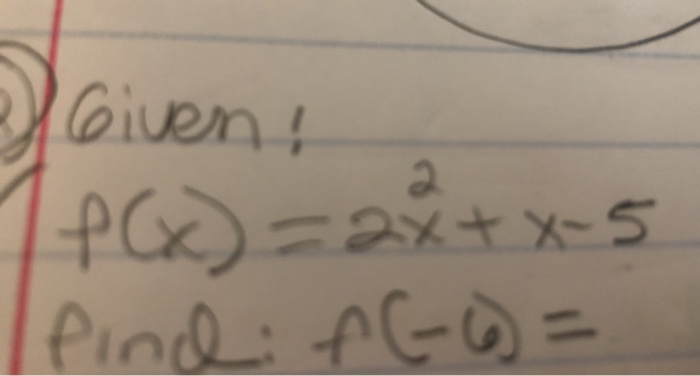 Given!
f(x) = 2x² + x - 5
find: f(-6) =